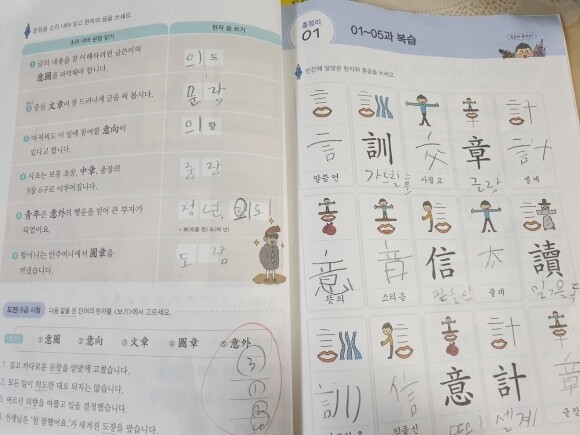 문장을 소리 내어 읽고 한자의 음을 쓰세요.
소리 내어 문장 읽기
한자 음 쓰기
글의 내용을 잘 이해하려면 글쓴이의
意圖를 파악해야 합니다.
의 도
중심 文章이 잘 드러나게 글을 써 봅시다.
문 장
아저씨도 이 일에 참여할 意向이
있다고 합니다.
의 향
시조는 보통 초장, 中章, 종장의
3장 6구로 이루어집니다.
중 장
青年은 意外의 행운을 얻어 큰 부자가
되었어요.
청 년, 의 외
할머니는 안주머니에서 圖章을
꺼냈습니다.
도 장
도전! 6급 시험
다음 밑줄 친 단어의 한자를 <보기>에서 고르세요.
①意圖 ②意向 ③文章 ④圖章 ⑤意外
1. 길고 까다로운 문장을 알맞게 고쳤습니다.
③
2. 모든 일이 의도한 대로 되지는 않습니다.
①
3. 어르신 의향을 여쭙고 일을 결정했습니다.
②
선생님은 '참 잘했어요.'가 새겨진 도장을 팠습니다.
4
총정리
01
01~05과 복습
빈칸에 알맞은 한자와 훈음을 쓰세요.
言 訓 交 章 計
말씀 언 가르칠 훈 사귈 교 글 장 셀 계
意 音 信 本 讀
뜻 의 소리 음 믿을 신 읽을 독
訓 信 意 計
믿을 신 뜻 의 셀 계 글 장